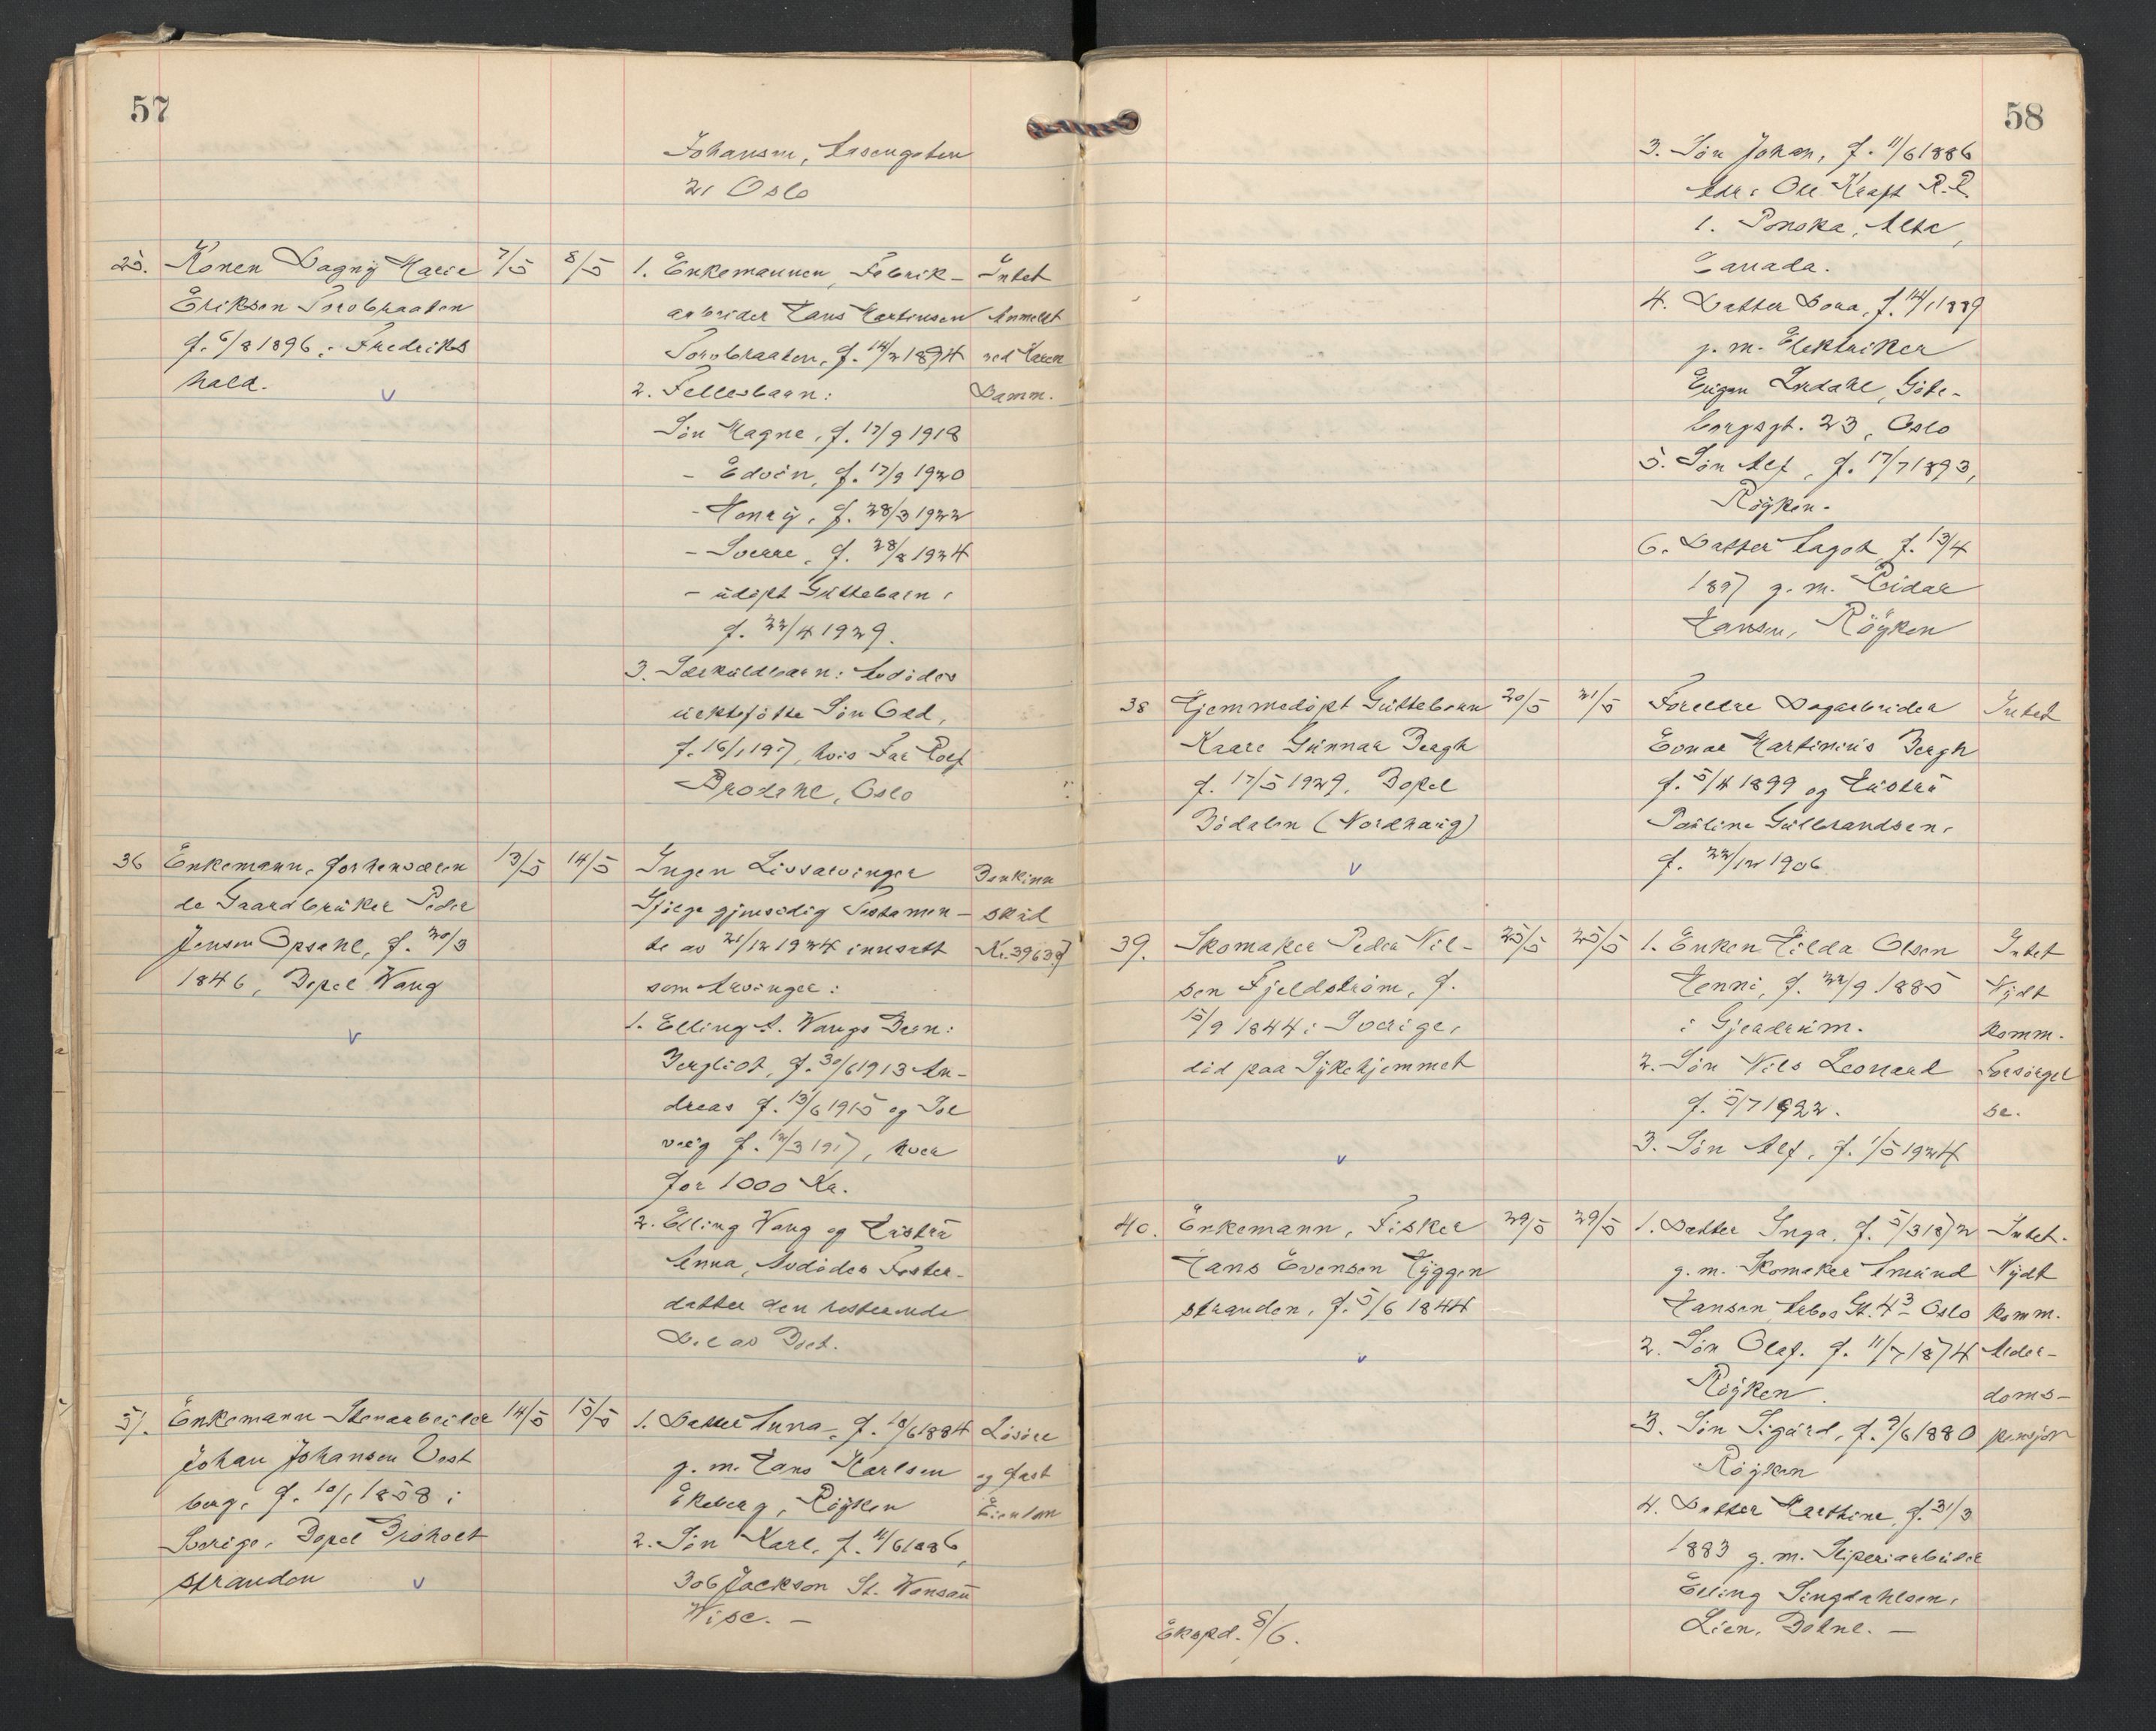 57
Johansen, Aasengaten
21 Oslo
25. Konen Dagny Marie 7/5 8/5 1. Enkemannen, Fabrik- Intet
Eriksen Torobraaten arbeider Hans Martinsen Anmeldt
f. 6/8 1896 i Fredriks Torobraaten, f. 14/2 1894 ved Karen
hald. v 2. Fellesbarn: Damm.
Sön Magne, f. 17/9 1918
- Edvin, f. 17/9 1920
- Henry, f. 28/3 1922
- Sverre, f. 28/8 1924
- udöpt Guttebarn,
f. 22/4 1929.
3. Særkuldbarn: Avdödes
uektefötte Sön Odd,
f. 16/1 1917, hvis Far Rolf
Brodahl, Oslo
36 Enkemann, forhenværen 13/5 14/5 Ingen Livsarvinger Bankinn
de Gaardbruker Peder Ifölge gjensidig Testamen- skud
Jensen Opsahl, f. 20/3 te av 21/12 1924 innsatt Kr. 3963
1846, Bopæl Wang som Arvinger:
v 1. Elling A. Wangs Barn:
Bergliot, f. 30/6 1913 An-
dreas f. 13/6 1915 og Sol
veig f. 12/3 1917, hver
for 1000 Kr.
2. Elling Wang og Hustru
Anna, Avdödes Foster-
datter den resterende
Del av Boet.
37. Enkemann Stenarbeider 14/5 15/5 1. Datter Anna, f. 18/6 1884 Lösöre
Johan Johansen Vest g. m. Hans Karlsen og fast
berg, f. 10/1 1858 i Ekeberg, Röyken Eiendom
Sverige. Bopæl Broholt 2. Sön Karl, f. 11/6 1886,
stranden v 306 Jackson St. Wausau
Wisc. -
58
3. Sön Johan, f. 11/6 1886
Adr: Ole Kraft R.R.
1. Ponoka, Alta,
Canada.
4. Datter Dora, f. 14/1 1889
g. m. Elektriker
Eugen Lindahl, Göte-
borgsgt. 23, Oslo
5. Sön Alf, f. 17/7 1893,
Röyken.
6. Datter Aagot, f. 13/4
1897 g. m. Reidar
Hansen, Röyken
38 Hjemmedöpt Guttebarn 20/5 21/5 Foreldre Dagarbeider Intet
Kaare Gunnar Bergh Einar Martinius Bergh
f. 17/5 1929, Bopel f. 5/4 1899 og Hustru
Bödalen (Nordhaug) Pauline Gulbrandsen,
v f. 22/12 1906
39. Skomaker Peder Nil- 25/5 25/5 1. Enken Hilda Olsen Intet
sen Fjeldström, f. Henni, f. 22/9 1885 Nydt
15/9 1844 i Sverige, i Gjerdrum. komm.
död paa Sykehjemmet 2. Sön Nils Leonard Forsörgel
f. 5/7 1922. se.
v 3. Sön Alf, f. 1/5 1924
40. Enkemann, Fisker 29/5 29/5 1. Datter Inga, f. 5/3 1872 Intet.
Hans Evensen Hyggen g. m. Skomaker Amund Nydt
stranden, f. 5/6 1844 Hansen Aabos Gt. 4³ Oslo komm.
v 2. Sön Olaf, f. 11/7 1874 Alder-
Röyken. doms-
3. Sön Sigurd, f. 9/6 1880 pensjon
Röyken
4. Datter Marthine, f. 31/3
1883 g. m. Sliperiarbeider
Elling Singdahlsen,
Lien, Bahnl. -
Ekspd. 8/6.